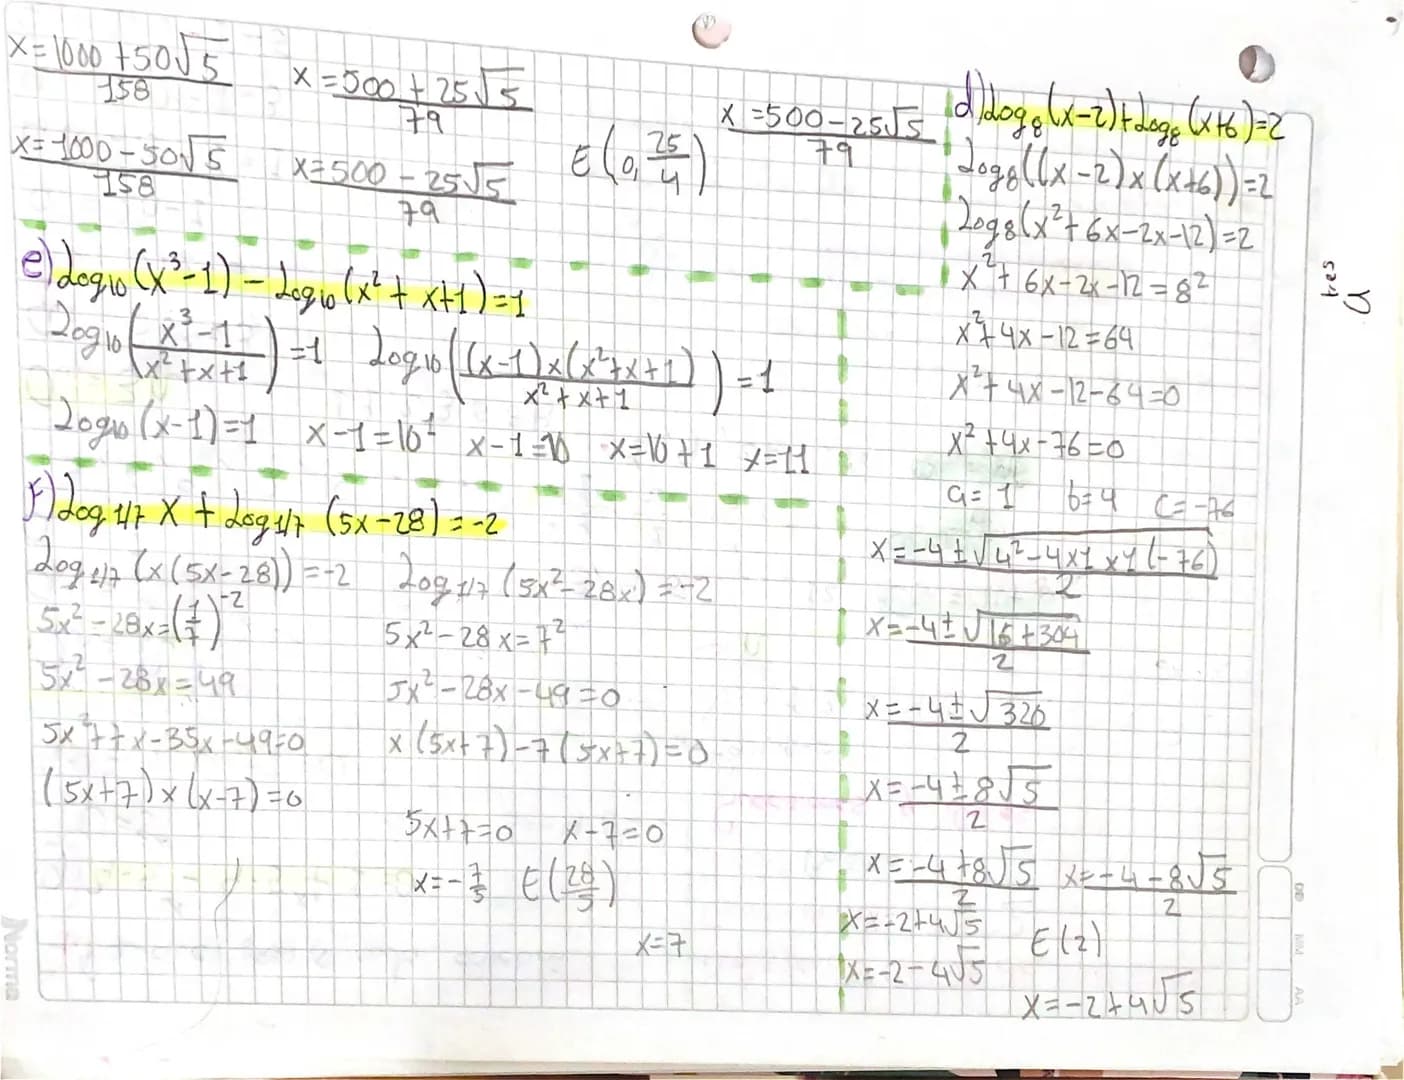 x=1000+50√5/158
x=500+25√5/79
x=1000-50√5/158
x=500-25√5/79
E(0, 25/4)
x=500-25√5/79
e) Log10(x³-1)-Log10(x²+x+1)=1
Log10(x³-1/x²+x+1)=1 Log10((x-1)x(x²+x+1)/x²+x+1)=1
Log10(x-1)=1 x-1=10¹ x-1=10 x=10+1 x=11
f) Log1/7 x + Log1/7 (5x-28)=-2
Log1/7 (x(5x-28))=-2 Log1/7 (5x²-28x)=-2
5x²-28x=(1/7)⁻² 5x²-28x=7²
5x²-28x=49 5x²-28x-49=0
5x²+7x-35x-49=0 x(5x+7)-7(5x+7)=0
(5x+7)x(x-7)=0
5x+7=0 x-7=0
x=-7/5 E(28/5)
x=7
d) Log8(x-2)+Log8(x+6)=2
Log8((x-2)x(x+6))=2
Log8(x²+6x-2x-12)=2
x²+6x-2x-12=8²
x²+4x-12=64
x²+4x-12-64=0
x²+4x-76=0
a=1 b=4 c=-76
x=-4±√4²-4x1x1(-76)/2
x=-4±√16+304/2
x=-4±√320/2
x=-4±8√5/2
x=-4+8√5/2 x=-4-8√5/2
x=-2+4√5
x=-2-4√5
E(2)
x=-2+4√5
tres
Norma
DD MM AA